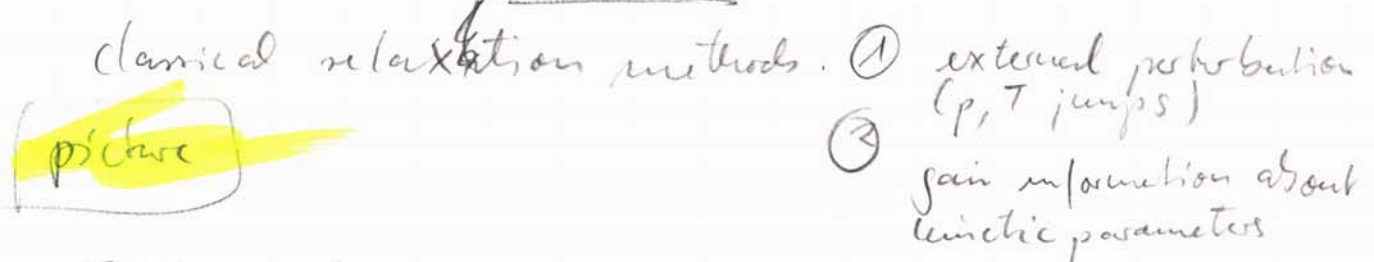 classical relaxation methods. ① external perturbation
(p, T jumps)
picture
② gain information about
kinetic parameters